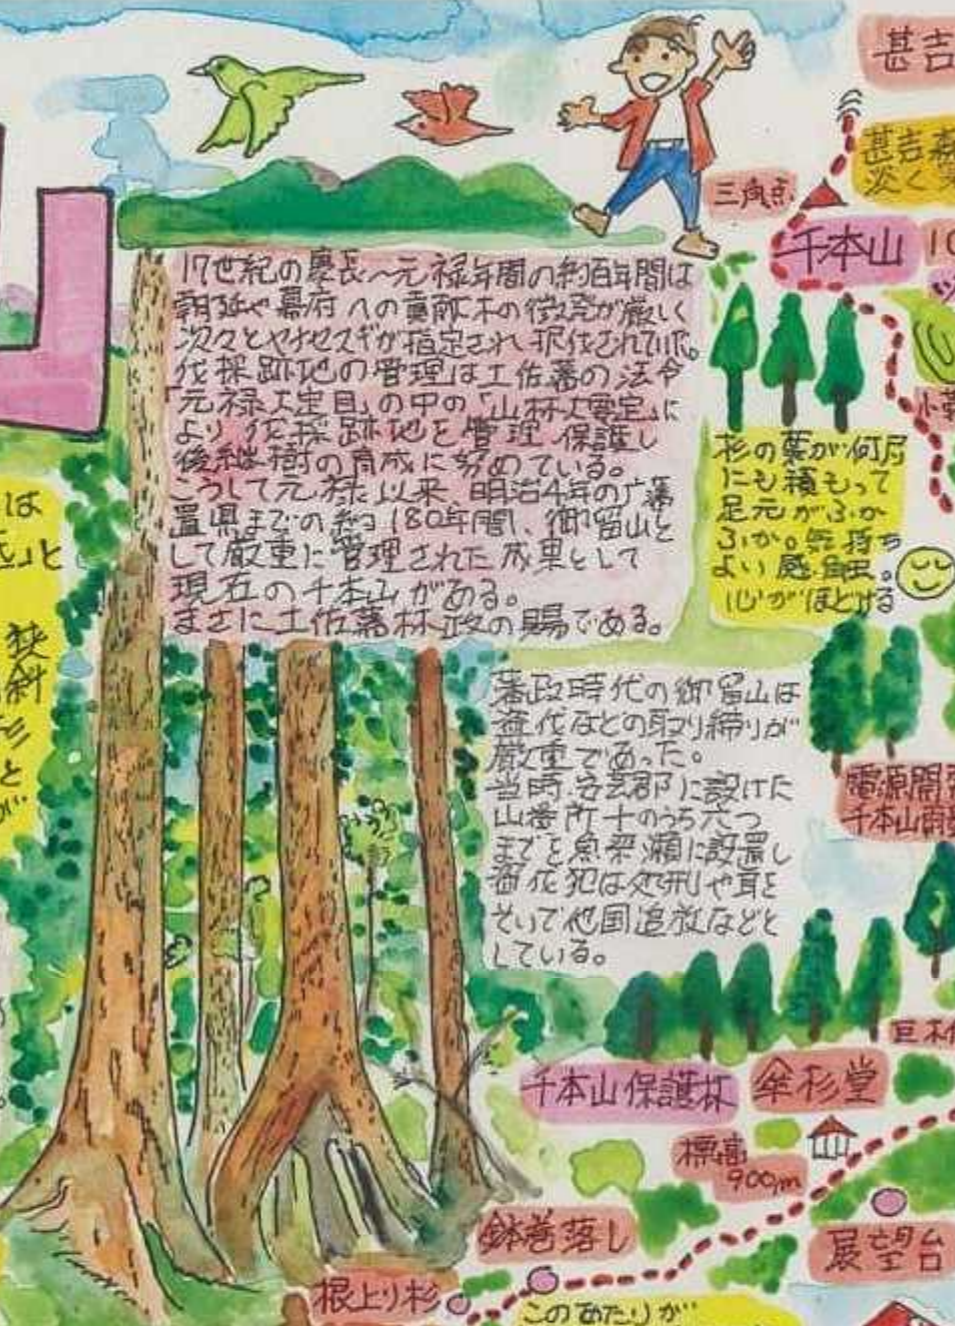 甚吉
甚吉森
淡く
三角点
千本山
17世紀の慶長〜元禄年間の約百年間は
朝廷や幕府への貢献木の徴発が厳しく
次々とやなせスギが指定され択伐されていた。
伐採跡地の管理は土佐藩の法令
「元禄大定目」の中の「山林大要定」に
より伐採跡地を管理、保護し
後継樹の育成に努めている。
こうして元禄以来、明治4年の廃藩
置県までの約180年間、御留山と
して厳重に管理された成果として
現在の千本山がある。
まさに土佐藩林政の賜である。
杉の葉が何層
にも積もって
足元がふか
ふか。気持ち
よい感触。
心がほどける
は
と
狭
斜
杉
と
藩政時代の御留山は
盗伐などの取り締りが
厳重であった。
当時、安芸郡に設けた
山番所十のうち六つ
までを魚梁瀬に設置し
盗伐犯は処刑や耳を
そいで他国追放などと
している。
電源開発
千本山
巨木
千本山保護林
傘杉堂
標高
900m
鉢巻落し
展望台
根上り杉
このあたりが